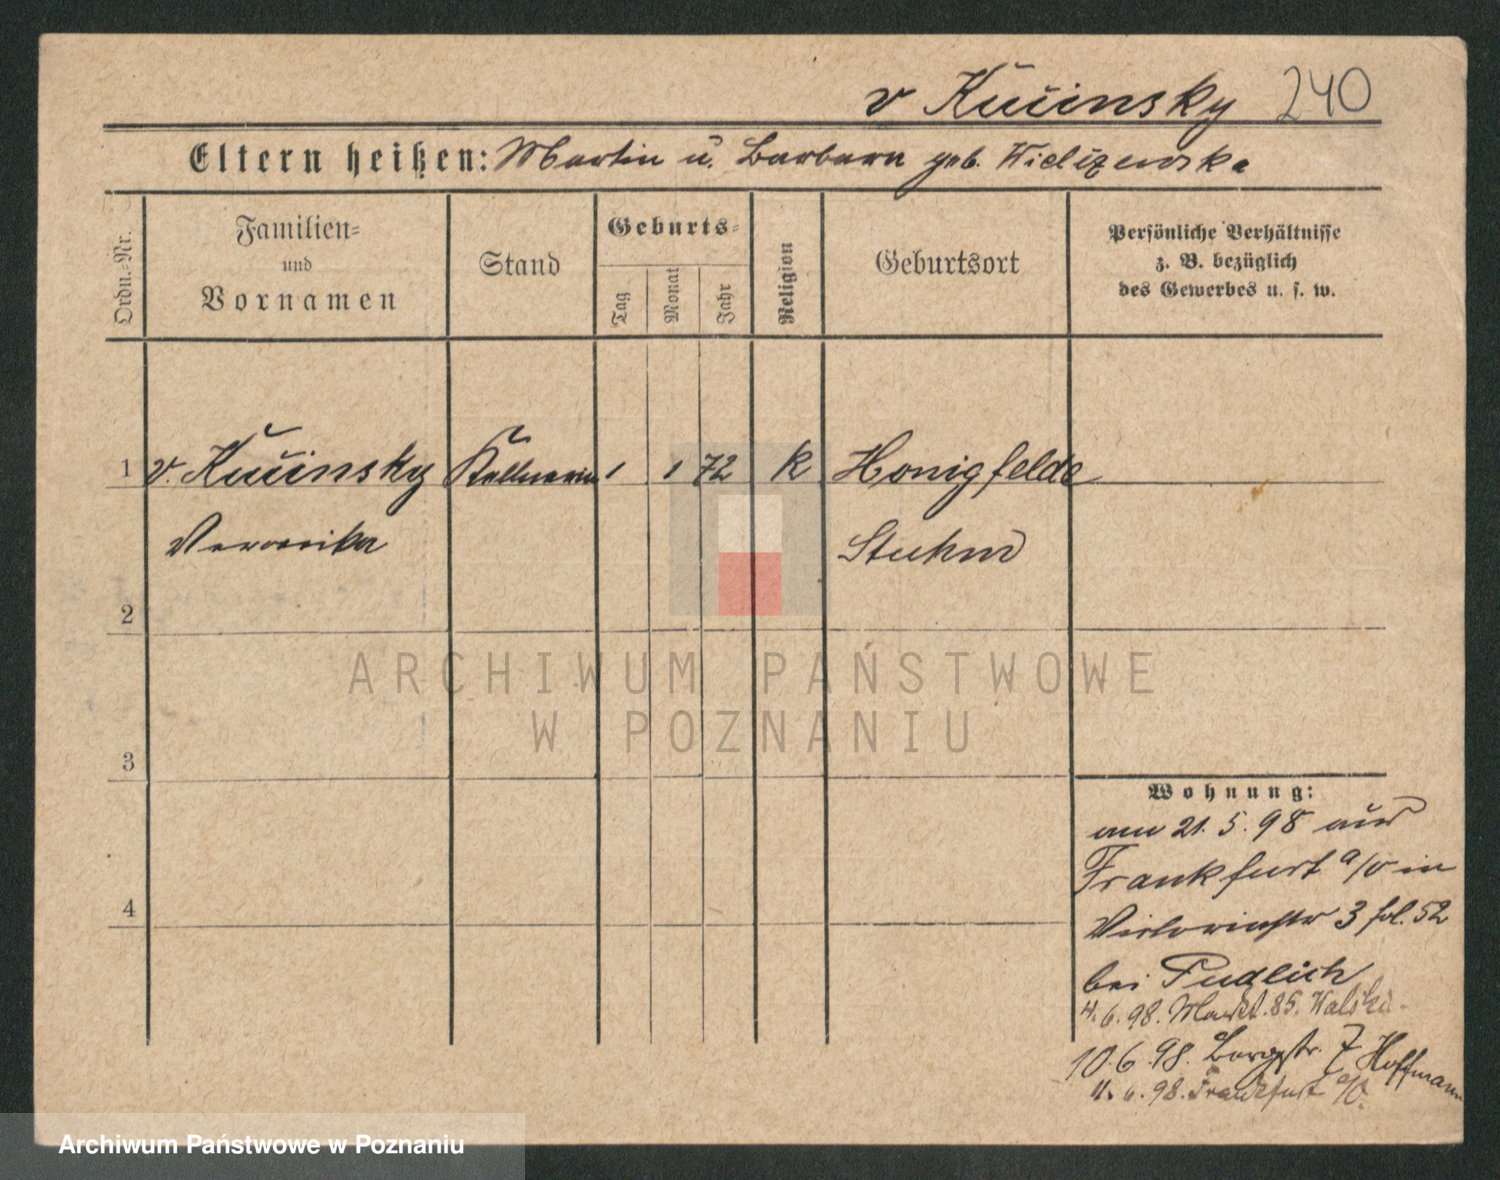 v Kučinsky 240
Eltern heißen: Martin u. Barbara geb. Wielizewska
Ordn.-Nr.
Familien-
und
Vornamen
Stand
Geburts-
Tag
Monat
Jahr
Religion
Geburtsort
Persönliche Verhältnisse
z. B. bezüglich
des Gewerbes u. s. w.
1 v. Kučinsky Kellnerin 1 1 72 k Honigfelde
Veronika Stuhm
2
3
4
Wohnung:
am 21.5.98 aus
Frankfurt a/O in
Victoriastr 3 fol. 52
bei Pudlich
4.6.98. Markt 85.
10.6.98. Bergstr. 7 Hoffmann
11.6.98. Frankfurt a/O.
ARCHIWUM PAŃSTWOWE
W POZNANIU
Archiwum Państwowe w Poznaniu